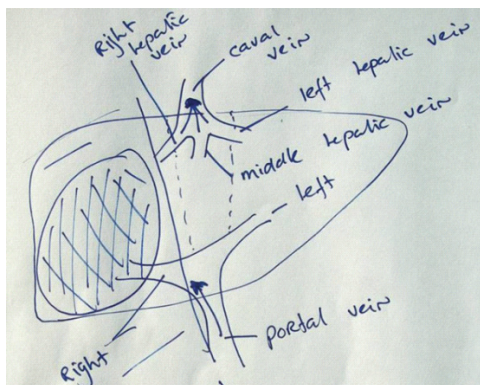 Right
hepatic
vein
caval
vein
left hepatic vein
middle hepatic vein
left
portal vein
Right